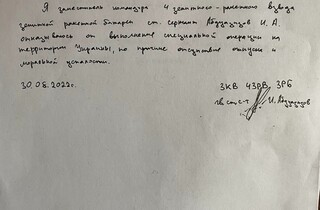 Я заместитель командира 4 зенитного-ракетного взвода
зенитной ракетной батареи ст. сержант Абдулазизов И. А.
отказываюсь от выполнения специальной операции на
территории Украины, по причине отсутствие отпуска и
моральной усталости.
30.08.2022г. ЗКВ 4ЗРВ ЗРБ
гв ст. с-т И. Абдулазизов